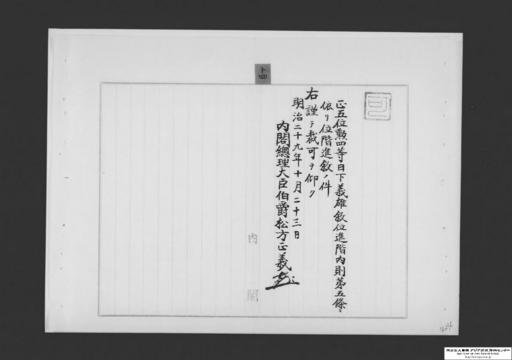 正五位勲四等日下義雄敍位進階内則第五條ニ
依リ位階進敍ノ件
右謹テ裁可ヲ仰ク
明治二十九年十月二十三日
内閣總理大臣伯爵松方正義
内閣